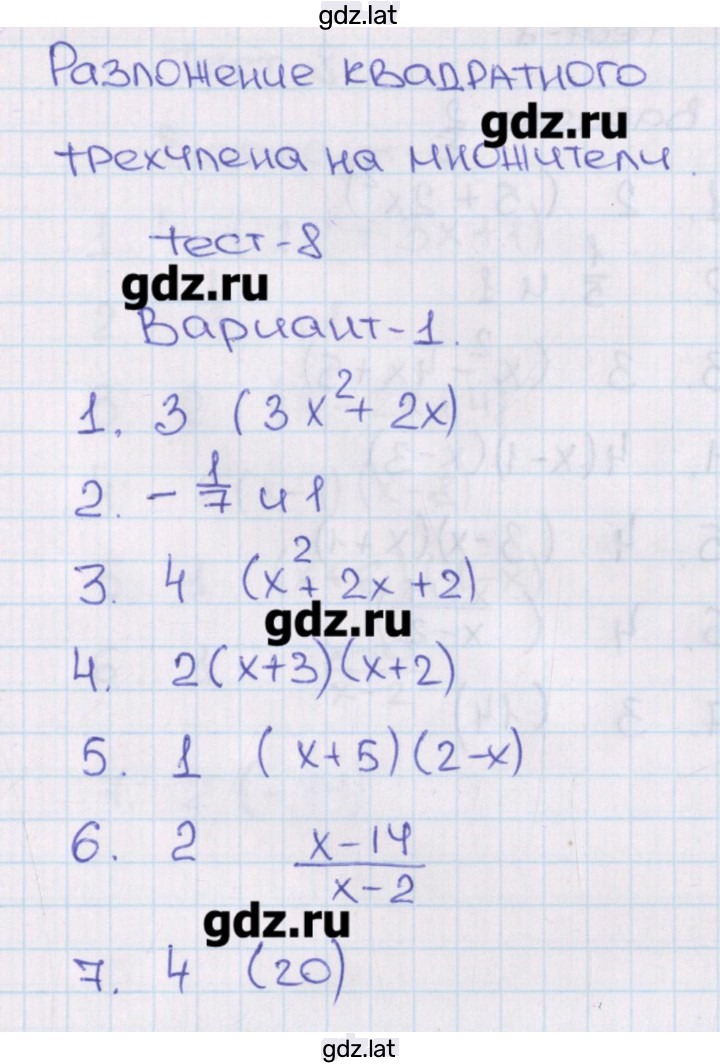 gdz.lat
Разложение квадратного
gdz.ru
трехчлена на множители.
тест-8
gdz.ru
Вариант-1.
1. 3 (3x²+ 2x)
2. - 1/7 и 1
3. 4 (x²+ 2x +2)
gdz.ru
4. 2(x+3)(x+2)
5. 1 (x+5)(2-x)
6. 2 x-14/x-2
gdz.ru
7. 4 (20)
gdz.lat